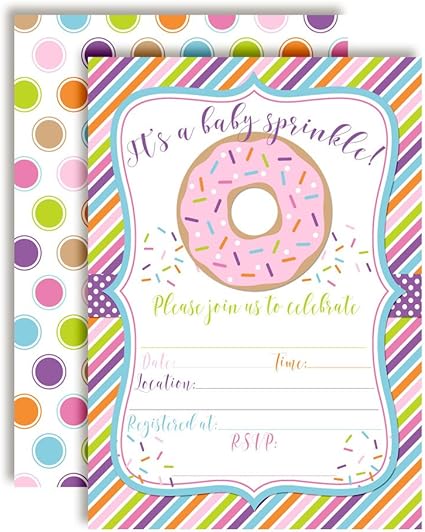 It's a baby sprinkle!
Please join us to celebrate
Date: Time:
Location:
Registered at:
RSVP: